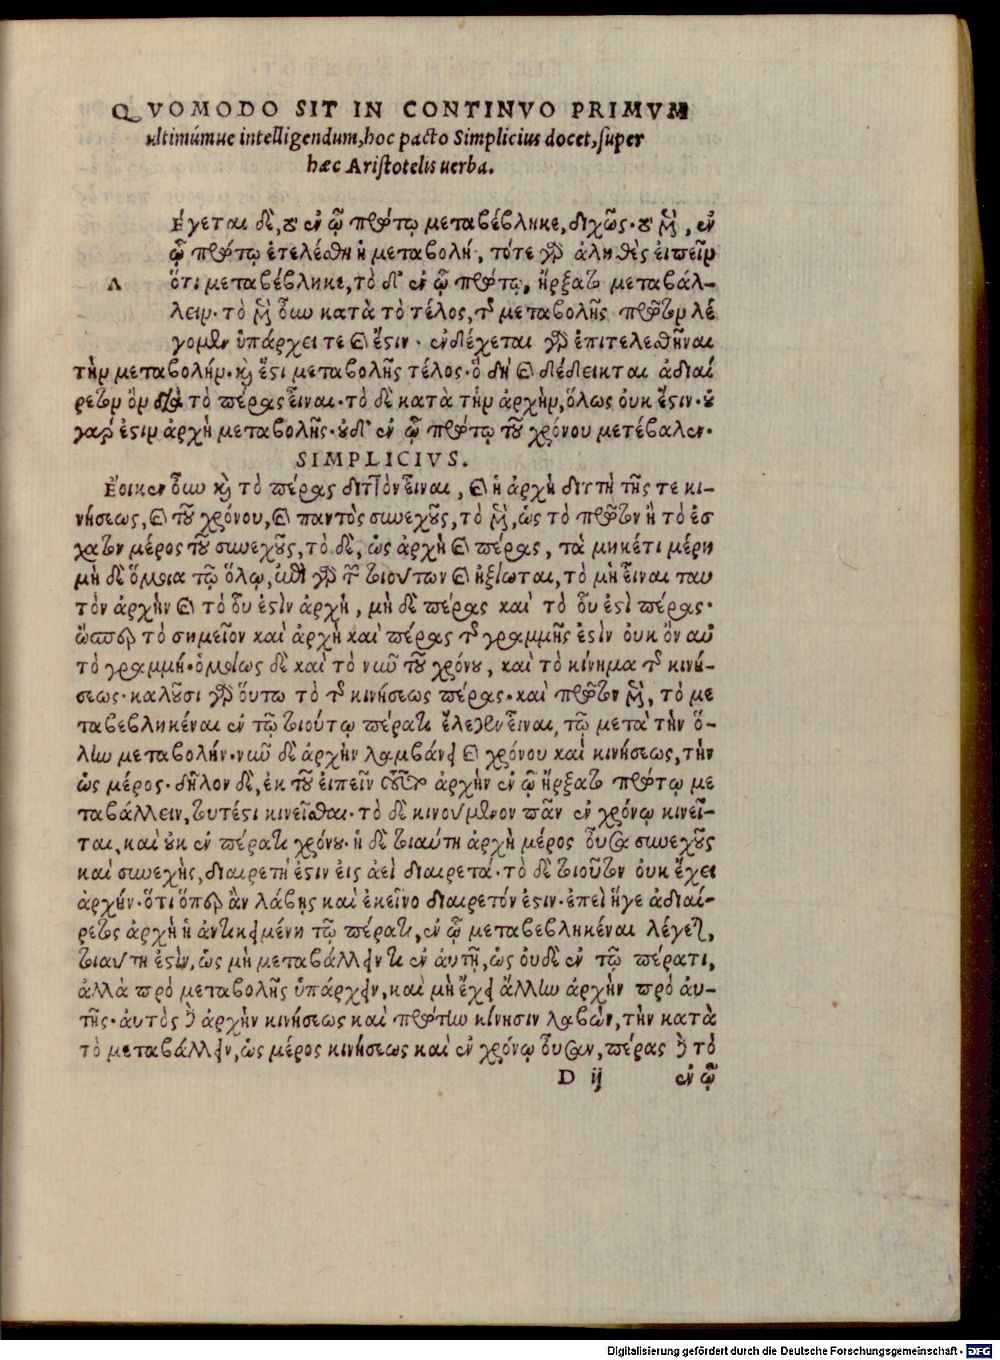 QVOMODO SIT IN CONTINVO PRIMVM
ultimúmue intelligendum, hoc pacto Simplicius docet, super
hæc Aristotelis uerba.
Λ
έγεται δὲ, ȣ ἐν ᾧ πρώτῳ μεταβέβληκε, διχῶς· ȣ μὲν, ἐν
ᾧ πρώτῳ ἐτελέσθη ἡ μεταβολή, τότε γὰρ ἀληθὲς εἰπεῖν
ὅτι μεταβέβληκε, τὸ δ' ἐν ᾧ πρώτῳ, ἤρξατο μεταβάλ-
λειν· τὸ μὲν οὖν κατὰ τὸ τέλος, τῆς μεταβολῆς πρῶτον λε
γομενον ὑπάρχει τε καὶ ἔστιν· ἐνδέχεται γὰρ ἐπιτελεσθῆναι
τὴν μεταβολήν· καὶ ἔστι μεταβολῆς τέλος· ὃ δὴ καὶ δέδεικται ἀδιαί
ρετον ὂν διὰ τὸ πέρας εἶναι· τὸ δὲ κατὰ τὴν ἀρχὴν, ὅλως οὐκ ἔστιν· ȣ
γάρ ἐστιν ἀρχὴ μεταβολῆς· ȣδ' ἐν ᾧ πρώτῳ τοῦ χρόνου μετέβαλεν·
SIMPLICIVS.
Ἔοικεν οὖν καὶ τὸ πέρας διττὸν εἶναι, καὶ ἡ ἀρχὴ διττὴ τῆς τε κι-
νήσεως, καὶ τοῦ χρόνου, καὶ παντὸς συνεχοῦς, τὸ μὲν, ὡς τὸ πρῶτον ἢ τὸ ἔσ
χατον μέρος τοῦ συνεχοῦς, τὸ δὲ, ὡς ἀρχὴ καὶ πέρας, τὰ μηκέτι μέρη
μὴ δὲ ὅμοια τῷ ὅλῳ, ἐπὶ γὰρ τῶν τοιούτων καὶ ἠξίωται, τὸ μὴ εἶναι ταυ
τὸν ἀρχὴν καὶ τὸ οὗ ἐστὶν ἀρχὴ, μὴ δὲ πέρας καὶ τὸ οὗ ἐστὶ πέρας·
ὥσπερ τὸ σημεῖον καὶ ἀρχὴ καὶ πέρας τῆς γραμμῆς ἐστὶν οὐκ ὂν αὐ
τὸ γραμμή· ὁμοίως δὲ καὶ τὸ νῦν τοῦ χρόνȣ, καὶ τὸ κίνημα τῆς κινή-
σεως· καλοῦσι γὰρ οὕτω τὸ τῆς κινήσεως πέρας· καὶ πρῶτον μὲν, τὸ με
ταβεβληκέναι ἐν τῷ τοιούτῳ πέρατι ἔλεγεν εἶναι, τῷ μετὰ τὴν ὅ-
λην μεταβολήν· νῦν δὲ ἀρχὴν λαμβάνει καὶ χρόνου καὶ κινήσεως, τὴν
ὡς μέρος· δῆλον δὲ, ἐκ τοῦ εἰπεῖν ἀρχὴν ἐν ᾧ ἤρξατο πρώτῳ με
ταβάλλειν, τουτέστι κινεῖσθαι· τὸ δὲ κινούμενον πᾶν ἐν χρόνῳ κινεῖ-
ται, καὶ ȣκ ἐν πέρατι χρόνȣ· ἡ δὲ τοιαύτη ἀρχὴ μέρος οὖσα συνεχοῦς
καὶ συνεχὴς, διαιρετή ἐστιν εἰς ἀεὶ διαιρετά· τὸ δὲ τοιοῦτον οὐκ ἔχει
ἀρχήν· ὅτι ὅπερ ἂν λάβῃς καὶ ἐκεῖνο διαιρετόν ἐστιν· ἐπεὶ ἥγε ἀδιαί-
ρετος ἀρχὴ ἡ ἀντικειμένη τῷ πέρατι, ἐν ᾧ μεταβεβληκέναι λέγεται,
τοιαύτη ἐστὶν, ὡς μὴ μεταβάλλειν τι ἐν αὐτῇ, ὡς οὐδὲ ἐν τῷ πέρατι,
ἀλλὰ πρὸ μεταβολῆς ὑπάρχειν, καὶ μὴ ἔχει ἄλλην ἀρχὴν πρὸ αὐ-
τῆς· αὐτὸς δὲ ἀρχὴν κινήσεως καὶ πρώτην κίνησιν λαβὼν, τὴν κατὰ
τὸ μεταβάλλειν, ὡς μέρος κινήσεως καὶ ἐν χρόνῳ οὖσαν, πέρας δὲ τὸ
D ij ἐν ᾧ
Digitalisierung gefördert durch die Deutsche Forschungsgemeinschaft - DFG